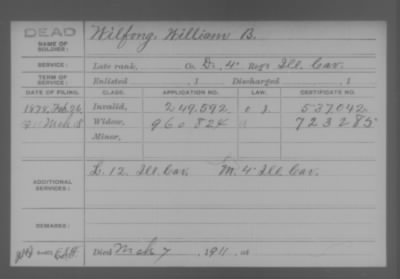 DEAD
NAME OF SOLDIER: Wilfong, William B.
SERVICE: Late rank, Co. D, 4" Reg't Ill. Cav.
TERM OF SERVICE: Enlisted , 1 Discharged , 1
DATE OF FILING. CLASS. APPLICATION NO. LAW. CERTIFICATE NO.
1878, Feb 26 Invalid, 249.592 537042
Mch Widow, 960.824 723285
Minor,
ADDITIONAL SERVICES: L. 12 Ill Cav. M. 4" Ill Cav.
REMARKS:
Died Mch 7 1911, at